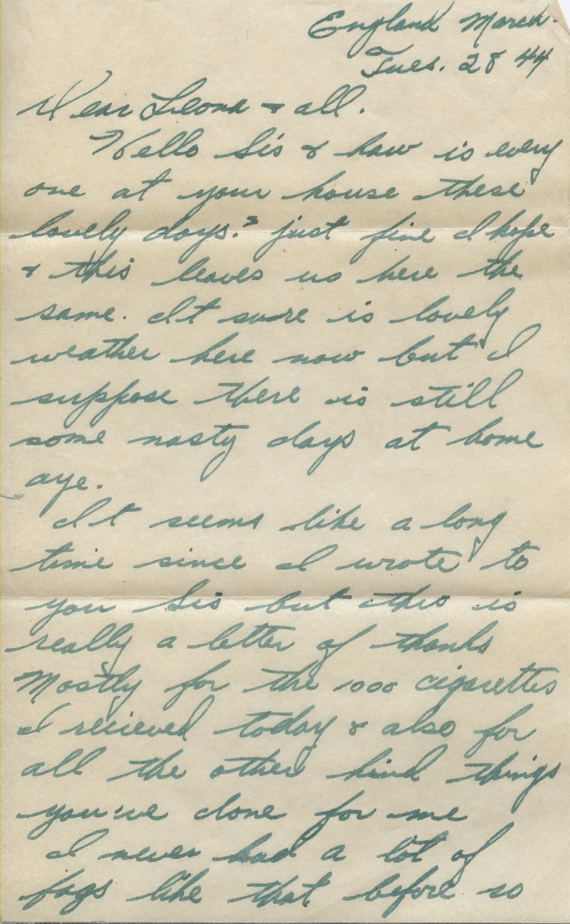 England March.
Tues. 28 44
Dear Leona & all.
Hello Sis & how is every
one at your house these
lovely days.? just fine I hope
& this leaves us here the
same. It sure is lovely
weather here now but I
suppose there is still
some nasty days at home
aye.
It seems like a long
time since I wrote to
you Sis but this is
really a letter of thanks
Mostly for the 1000 cigarettes
I recieved today & also for
all the other kind things
you've done for me
I never had a lot of
fags like that before so